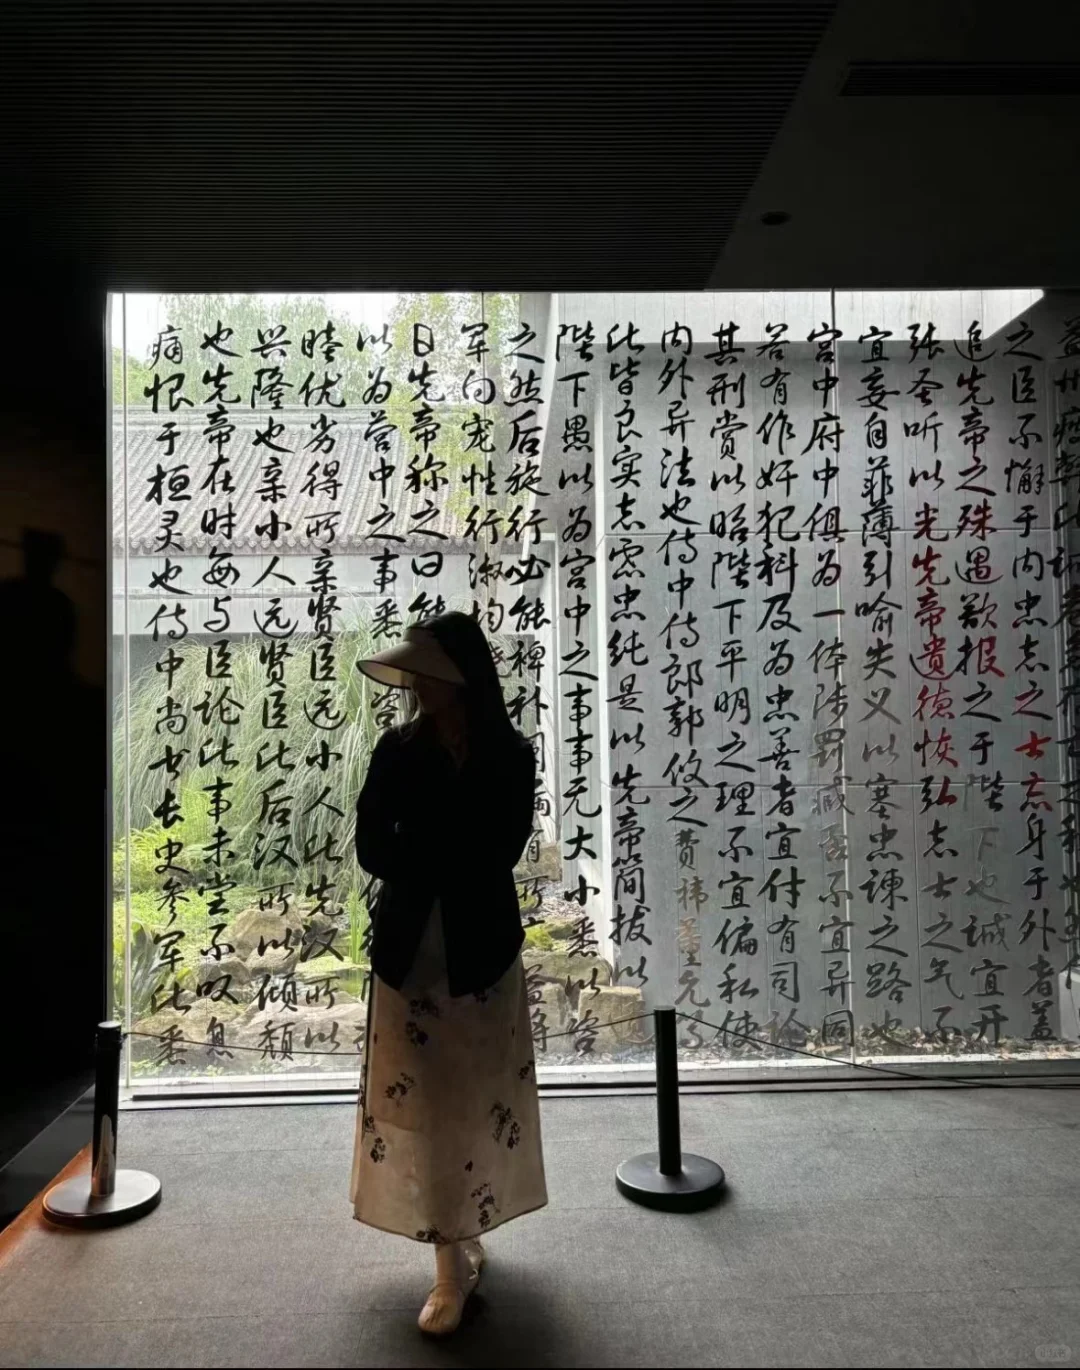 益州疲弊此诚危急存亡之秋也
之臣不懈于内忠志之士忘身于外者盖
追先帝之殊遇欲报之于陛下也诚宜开
张圣听以光先帝遗德恢弘志士之气不
宜妄自菲薄引喻失义以塞忠谏之路也
宫中府中俱为一体陟罚臧否不宜异同
若有作奸犯科及为忠善者宜付有司论
其刑赏以昭陛下平明之理不宜偏私使
内外异法也侍中侍郎郭攸之费祎董允等
此皆良实志虑忠纯是以先帝简拔以遗
陛下愚以为宫中之事事无大小悉以咨
之然后施行必能裨补阙漏有所广益将
军向宠性行淑均晓
日先帝称之曰能
以为营中之事悉咨
睦优劣得所亲贤臣远小人此先汉所以
兴隆也亲小人远贤臣此后汉所以倾颓
也先帝在时每与臣论此事未尝不叹息
痛恨于桓灵也侍中尚书长史参军此悉